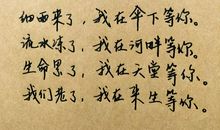 细雨来了，我在伞下等你。
流水冻了，我在河畔等你。
生命累了，我在天堂等你。
我们老了，我在来生等你。